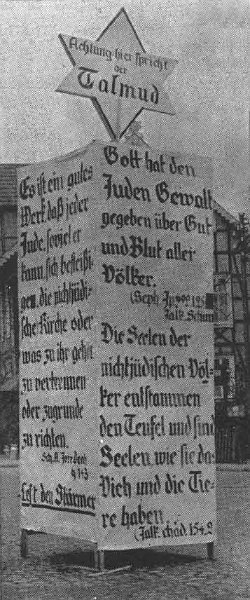 Achtung hier spricht
der
Talmud
Es ist ein gutes
Werk daß jeder
Jude, soviel er
kann, sich befleißi-
gen, die nichtjüdi-
sche Kirche oder
was zu ihr gehört
zu verbrennen
oder zugrunde
zu richten.
Sch. A. Jore deah
§ 143
Lest den Stürmer
Gott hat den
Juden Gewalt
gegeben über Gut
und Blut aller
Völker.
(Seph.
Jalk. Schim
Die Seelen der
nichtjüdischen Völ-
ker entstammen
den Teufel und sind
Seelen wie sie das
Vieh und die Tie-
re haben
(Jalk. chad 154,2